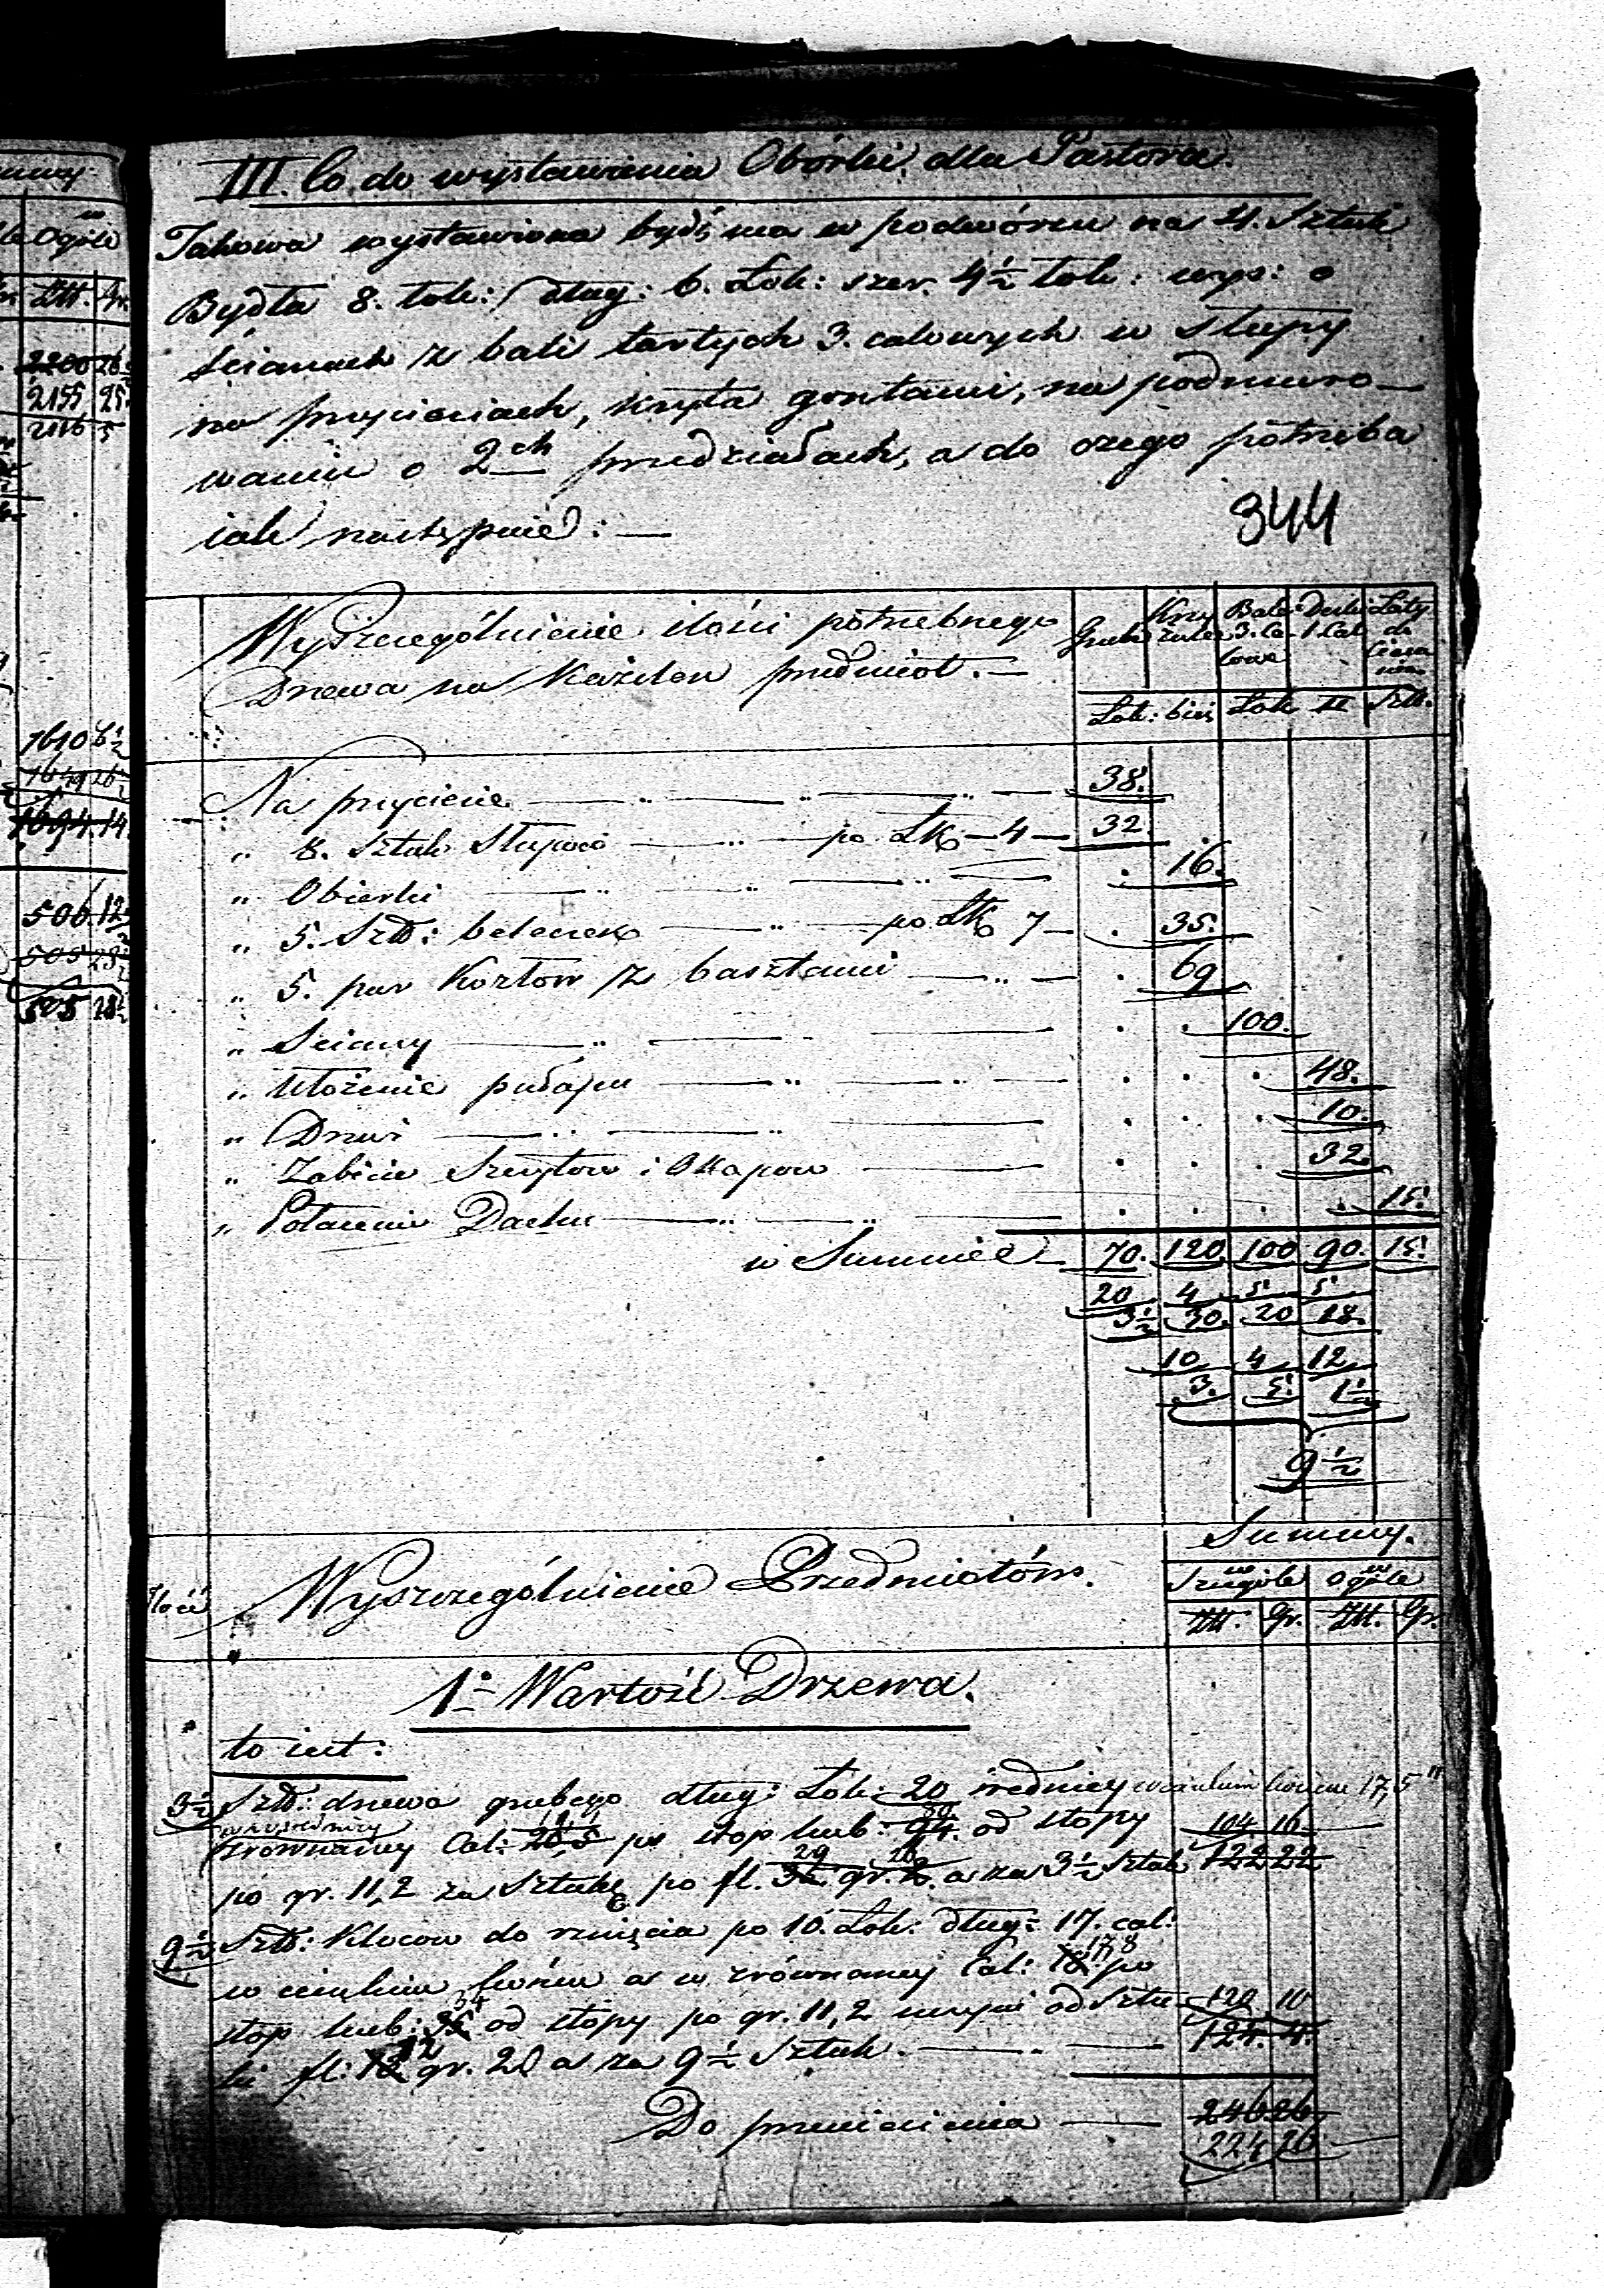 III. Co do wystawienia Obórki dla Pastora.
Takowa wystawiona bydź ma w podwórzu na 4. Sztuk
Bydła 8. łok: dług: 6. Łok: szer. 4½ łok: wys: o
ścianach z bali tartych 3. calowych w słupy
na przyciesiach, kryta gontami, na podmuro-
waniu o 2ch przedziałach, a do czego potrzeba
iak następnie: —
344
Wyszczególnienie ilości potrzebnego
Drzewa na każden przedmiot. —
Grube
Bale 3. calowe
Deski 1. Cal
Łaty do
Łok: bież Łok □ Szt.
Na przyciesie 38.
" 8. Sztuk Słupów po Łk 4 32.
" Obierki 16.
" 5. Szt: belecek po Łk 7 35.
" 5. par Kozłów z basztami 69
" Sciany 100.
" Ułożenie pułapu 48.
" Drzwi 10.
" Zabicie Szczytow i Okapow 32.
" Połacenie Dachu 15.
w Summie 70. 120. 100 90. 15.
20 4 5 5
3½ 30. 20 18.
10 4 12
3. 5. 1½
9½
Ilość Wyszczególnienie Przedmiotów.
Summy.
w Szczególe w Ogóle
Złt. Gr. Złt. Gr.
1o Wartość Drzewa.
to iest:
3½ Szt: drzewa grubego dług: Łok: 20 średnicy w cieńkim końcu 17,5"
zrównaney Cal: 20,5 po stop kub: 94. od stopy 104 16
po gr. 11,2 za Sztukę po fl. 29 gr. a za 3½ Sztuk 122 22
9½ Szt: Klocow do rznięcia po 10. Łok: dług: 17. cal:
w cieńkim końcu a w zrównaney Cal: 17,8 po
stop kub: 34 od stopy po gr. 11,2 czyni od Sztu- 120 10
ki fl: 12 gr. 20 a za 9½ Sztuk. 124. 4.
Do przeniesienia 246 26
224 26
2200 26
2155 25
2116 5
1610 6½
1649 26
1694. 14.
506. 12
505 28
505 28½